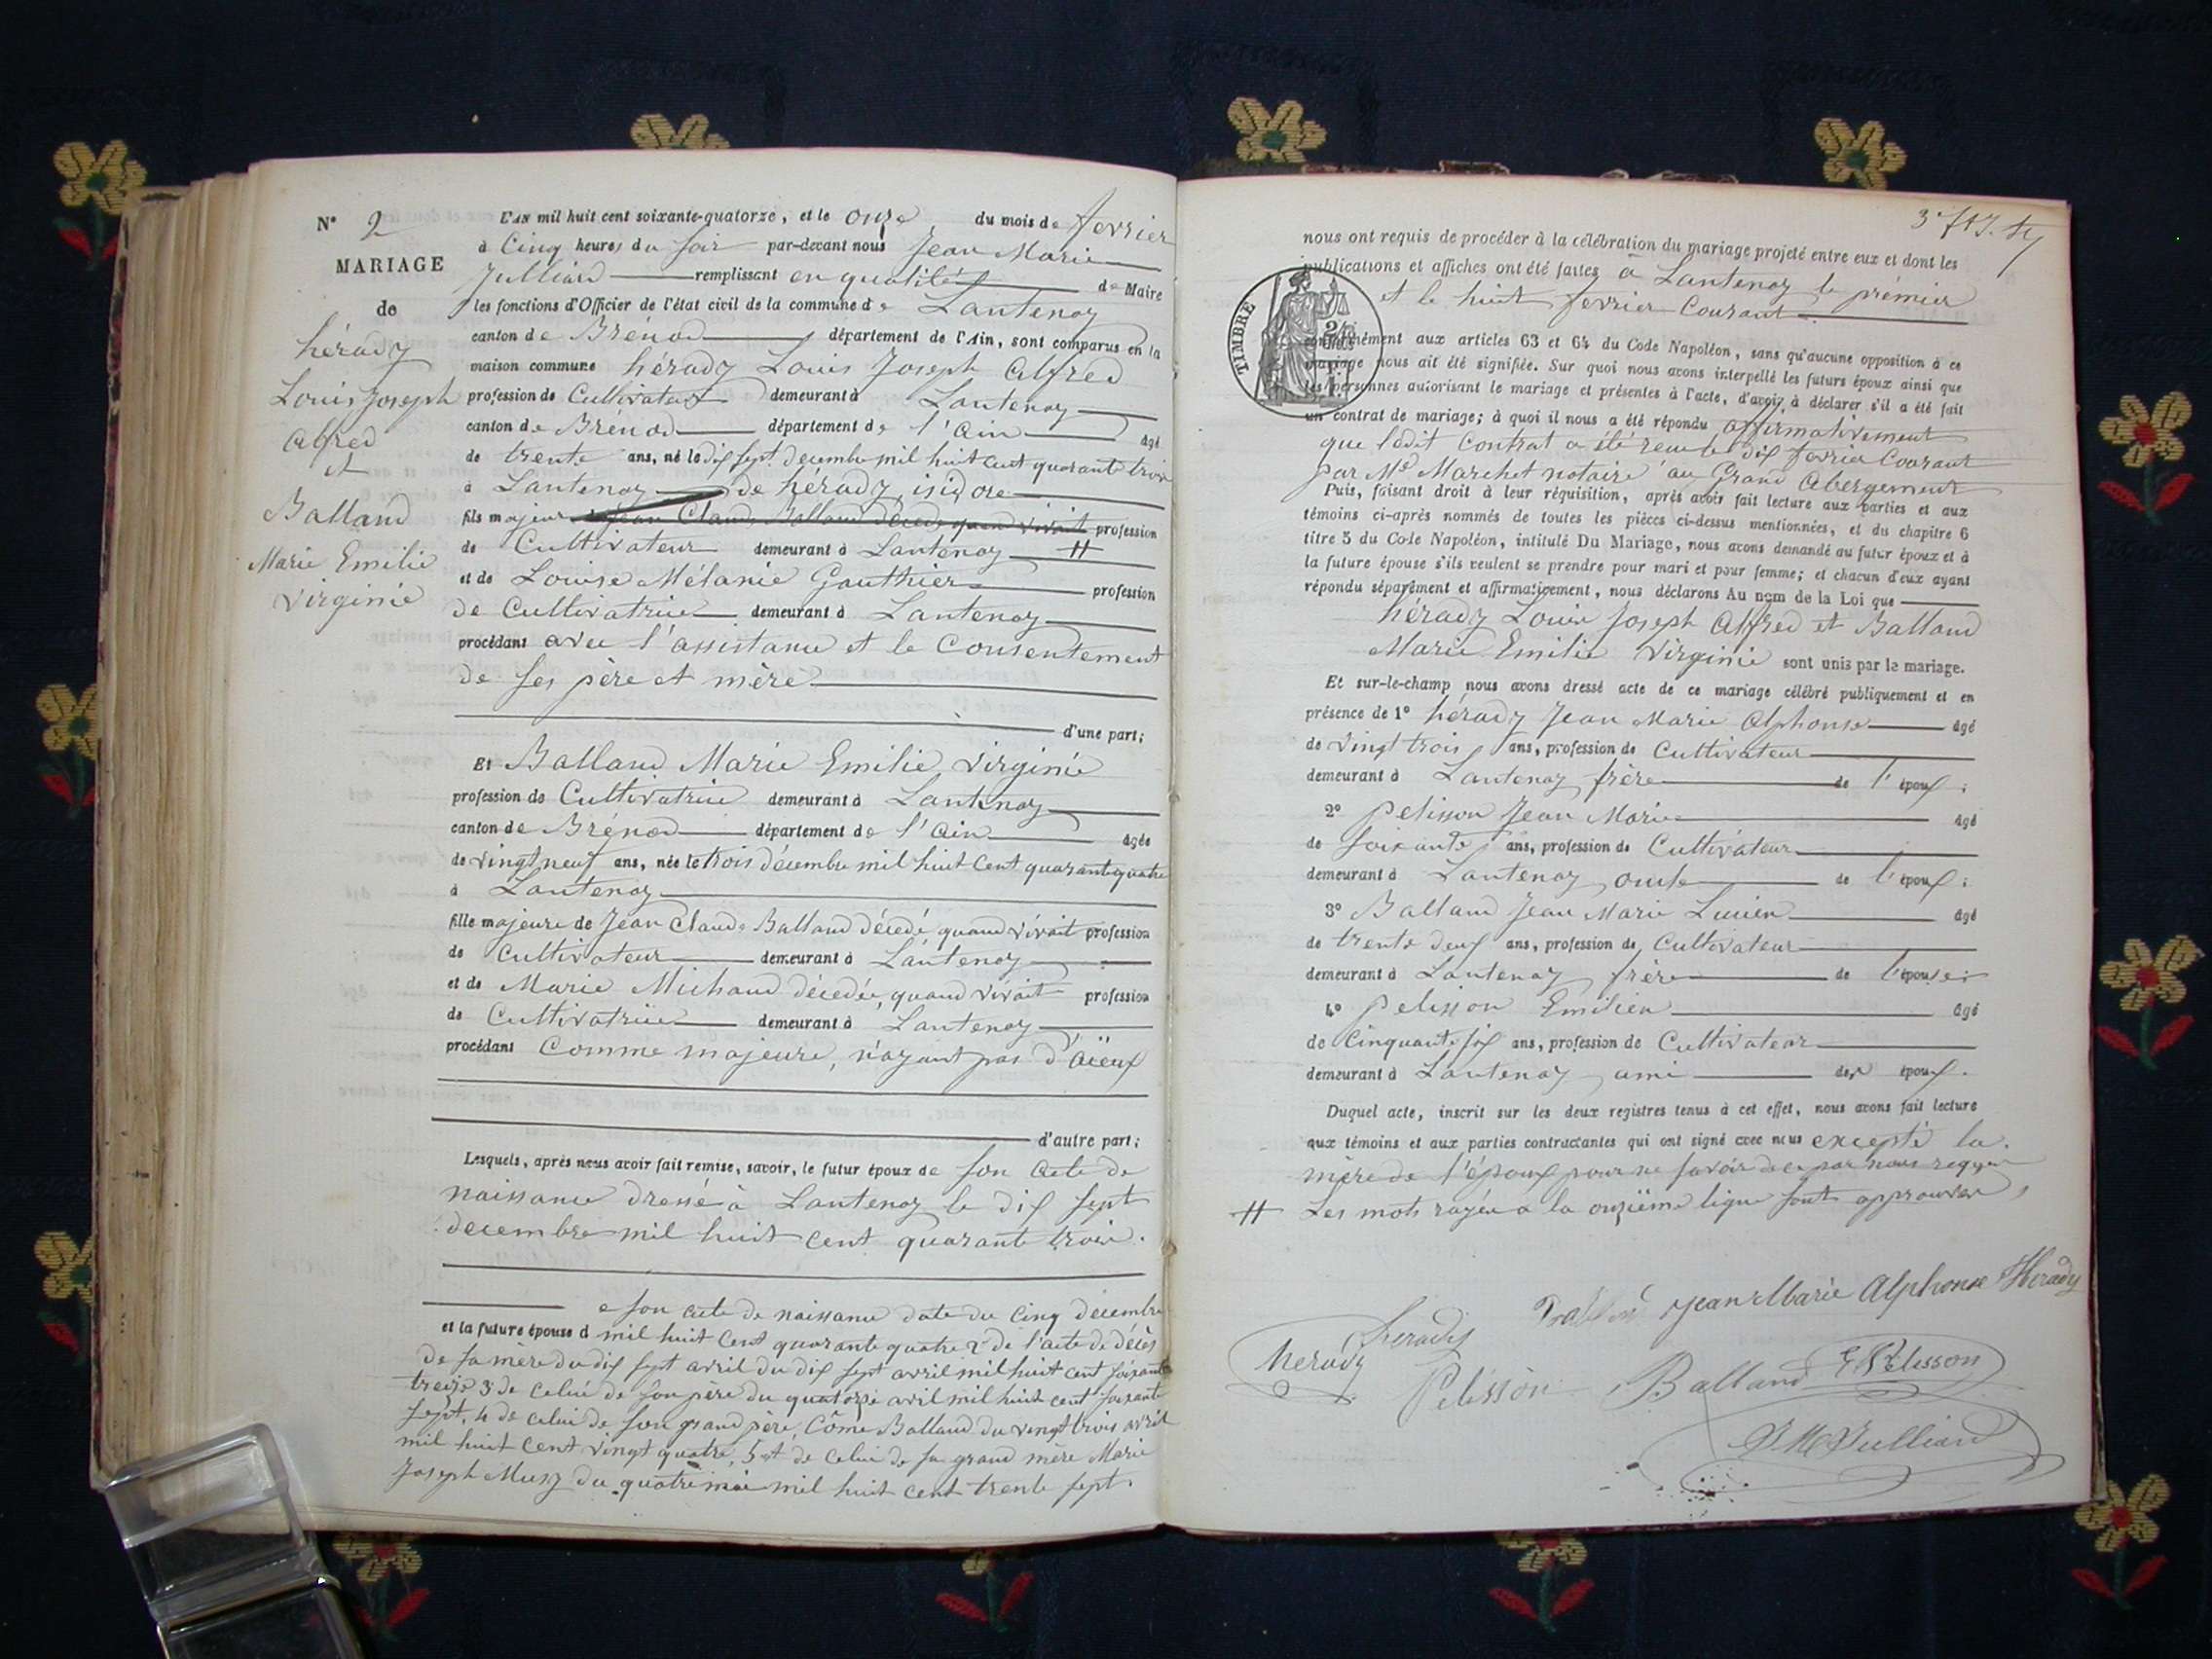 N° 2
MARIAGE
de
hérady
Louis Joseph
Alfred
et
Balland
Marie Emilie
Virginie
L'AN mil huit cent soixante-quatorze, et le onze du mois de fevrier
à Cinq heures du soir par-devant nous Jean Marie
Julliard remplissant en qualité de Maire
les fonctions d'Officier de l'état civil de la commune de Lantenay
canton de Brénod département de l'Ain, sont comparus en la
maison commune hérady Louis Joseph Alfred
profession de Cultivateur demeurant à Lantenay
canton de Brénod département de l'Ain âgé
de trente ans, né le dix sept decembre mil huit cent quarante trois
à Lantenay de hérady isidore
fils majeur Jean Claude Balland décédé quand vivait profession
de Cultivateur demeurant à Lantenay #
et de Louise Mélanie Gauthier profession
de Cultivatrice demeurant à Lantenay
procédant avec l'assistance et le Consentement
de ses père et mère
d'une part;
Et Balland Marie Emilie Virginie
profession de Cultivatrice demeurant à Lantenay
canton de Brénod département de l'Ain âgée
de vingt neuf ans, née le trois décembre mil huit Cent quarante quatre
à Lantenay
fille majeure de Jean Claude Balland décedé quand vivait profession
de Cultivateur demeurant à Lantenay
et de Marie Michaud décedée, quand vivait profession
de Cultivatrice demeurant à Lantenay
procédant Comme majeure, n'ayant pas d'aïeux
d'autre part;
Lesquels, après nous avoir fait remise, savoir, le futur époux de son acte de
naissance dressé à Lantenay le dix sept
decembre mil huit cent quarante trois.
e son acte de naissance date du cinq décembre
et la future épouse d mil huit Cent quarante quatre 2° de l'acte de décès
de sa mère du dix sept avril du dix sept avril mil huit cent soixante
treize 3° de celui de son père du quatorze avril mil huit cent soixante
sept, 4 de celui de son grand père, Côme Balland du vingt trois avril
mil huit Cent vingt quatre, 5 et de celui de sa grand mère Marie
Joseph Musy du quatre mai mil huit cent trente sept.
nous ont requis de procéder à la célébration du mariage projeté entre eux et dont les
publications et affiches ont été faites à Lantenay le prémier
et le huit fevrier Courant
TIMBRE
conformément aux articles 63 et 64 du Code Napoléon, sans qu'aucune opposition à ce
mariage nous ait été signifiée. Sur quoi nous avons interpellé les futurs époux ainsi que
les personnes autorisant le mariage et présentes à l'acte, d'avoir à déclarer s'il a été fait
un contrat de mariage; à quoi il nous a été répondu affirmativement
que ledit Contrat a été reçu le dix fevrier Courant
par Me Marchet notaire au Grand Abergement
Puis, faisant droit à leur réquisition, après avoir fait lecture aux parties et aux
témoins ci-après nommés de toutes les pièces ci-dessus mentionnées, et du chapitre 6
titre 5 du Code Napoléon, intitulé Du Mariage, nous avons demandé au futur époux et à
la future épouse s'ils veulent se prendre pour mari et pour femme; et chacun d'eux ayant
répondu séparément et affirmativement, nous déclarons Au nom de la Loi que
hérady Louis Joseph Alfred et Balland
Marie Emilie Virginie sont unis par le mariage.
Et sur-le-champ nous avons dressé acte de ce mariage célébré publiquement et en
présence de 1° hérady Jean Marie Alphonse âgé
de vingt trois ans, profession de Cultivateur
demeurant à Lantenay frère de l'époux;
2° Pelisson Jean Marie âgé
de soixante ans, profession de Cultivateur
demeurant à Lantenay, oncle de l'époux;
3° Balland Jean Marie Lucien âgé
de trente deux ans, profession de Cultivateur
demeurant à Lantenay frère de l'épouse;
4° Pelisson Emilien âgé
de Cinquante six ans, profession de Cultivateur
demeurant à Lantenay ami des époux.
Duquel acte, inscrit sur les deux registres tenus à cet effet, nous avons fait lecture
aux témoins et aux parties contractantes qui ont signé avec nous excepté la
mère de l'époux pour ne savoir de ce par nous requise
# Les mots rayés a la onzième ligne sont approuvés,
Jean Marie Alphonse Herady
herady
herady
Pelisson
Balland
E Pelisson
J M Julliard